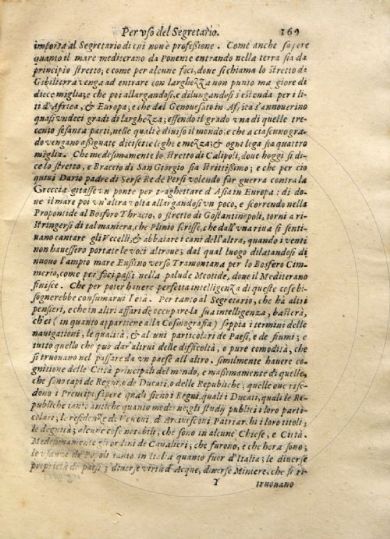 Per vso del Segretario. 169
importa al Segretario di cui non è professione. Come anche sapere
quanto il mare mediterano da Ponente entrando nella terra sia da
principio stretto, e come per alcune foci, doue si chiama lo stretto di
Gibilterra venga ad entrare con larghezza non punto maggiore di
diece miglia; che poi allargandosi, e dilungandosi s'estenda per i li
ti d'Africa, & Europa; e che dal Genouesato in Africa s'annouerino
quasi vndeci gradi di larghezza; essendo il grado vna di quelle tre
cento sesanta parti, nelle quali è diuiso il mondo: e che a ciascun gra-
do vengano assignate diciasette leghe e mezza; & ogni lega sia quattro
miglia. Che medesimamente lo stretto di Calipoli, doue hoggi si di-
ce lo stretto, e Braccio di San Giorgio sia strettissimo; e che per ciò
quiui Dario padre di Serse Re de Persi volendo far guerra contra la
Grecia gittasse vn ponte per traghettare d'Asia in Europa: di do-
ue il mare poi vn'altra volta allargandosi vn poco, e scorrendo nella
Propontide al Bosforo Thracio, o stretto di Costantinopoli, torni a ri-
stringersi di tal maniera, che Plinio scrisse, che dall'vna riua si sen-
tiuano cantare gli Vccelli, & abbaiare i cani dell'altra, quando i venti
non hauessero portate le voci altroue; dal qual luogo dilatandosi di
nuouo l'ampio mare Eusino verso Tramontana per lo Bosforo Cim-
merio, come per foci passi nella palude Meotide, doue il Mediterano
finisce. Che per poter hauere perfetta intelligenza di queste cose bi-
sognerebbe consumarui l'età. Per tanto al Segretario, che hà altri
pensieri, e che in altri affari dè occupare la sua intelligenza, basterà,
ch'ei (in quanto appartiene alla Cosmografia) sappia i termini delle
nauigationi, le qualità, & alcuni particolari de Paesi, e de fiumi; e
tutto quello che può dar'altrui delle difficoltà, o pure comodità, che
si truouano nel passare da vn paese all'altro, similmente hauere co-
gnitione delle Città principali del mondo, e massimamente di quelle,
che son capi de Regni, o de Ducati, o delle Republiche; quelle oue risie-
dono i Prencipi; sapere quali sieno i Regni, quali i Ducati, quali le Re-
publiche tanto antiche quanto moderne; gli studij publici i loro parti-
colari, le residenze de Vescoui, d'Arciuescoui, Patriarchi i loro titoli;
le degnità; alcune cose notabili, che sono in alcune Chiese, e Città.
Medesimamente gli ordini de Caualieri, che furono, e che hora sono;
le vsanze de Popoli tanto in Italia quanto fuor d'Italia; le diuerse
proprietà de paesi, e diuerse virtù d'Acque, diuerse Miniere, che si ri-
Y truouano